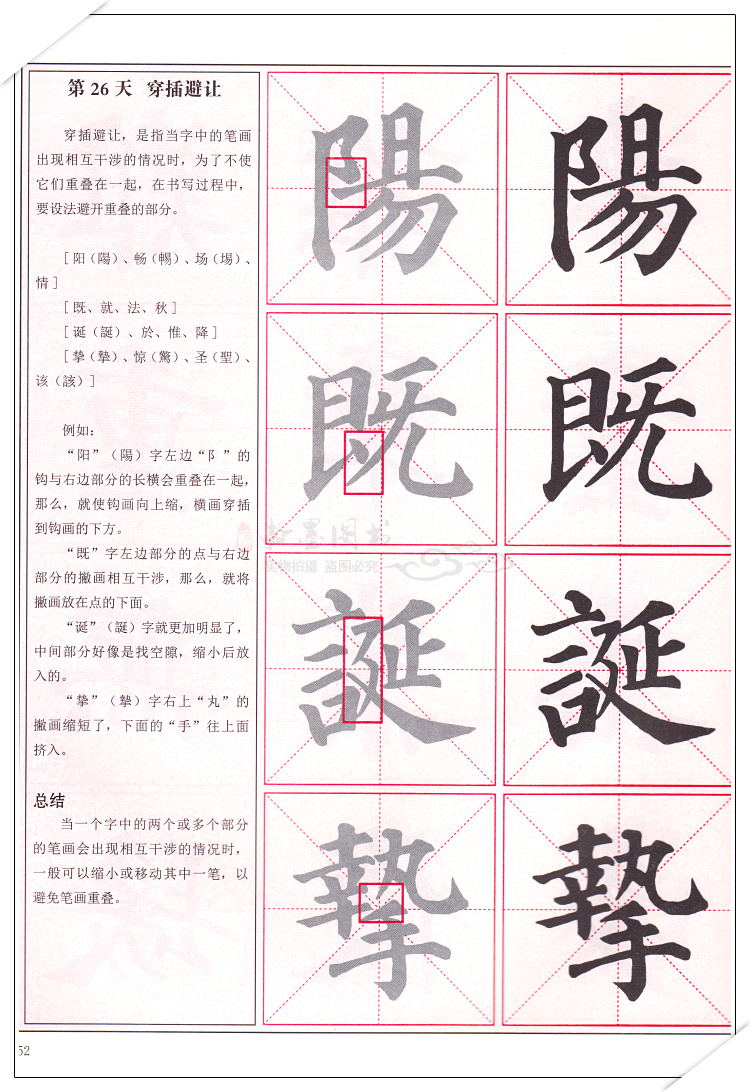 第 26 天 穿插避让
穿插避让，是指当字中的笔画
出现相互干涉的情况时，为了不使
它们重叠在一起，在书写过程中，
要设法避开重叠的部分。
［阳（陽）、畅（暢）、场（場）、
情］
［既、就、法、秋］
［诞（誕）、於、惟、降］
［挚（摯）、惊（驚）、圣（聖）、
该（該）］
例如：
“阳”（陽）字左边“阝”的
钩与右边部分的长横会重叠在一起，
那么，就使钩画向上缩，横画穿插
到钩画的下方。
“既”字左边部分的点与右边
部分的撇画相互干涉，那么，就将
撇画放在点的下面。
“诞”（誕）字就更加明显了，
中间部分好像是找空隙，缩小后放
入的。
“挚”（摯）字右上“丸”的
撇画缩短了，下面的“手”往上面
挤入。
总结
当一个字中的两个或多个部分
的笔画会出现相互干涉的情况时，
一般可以缩小或移动其中一笔，以
避免笔画重叠。
陽 陽
既 既
誕 誕
摯 摯
墨图书
实物拍摄 盗图必究
52